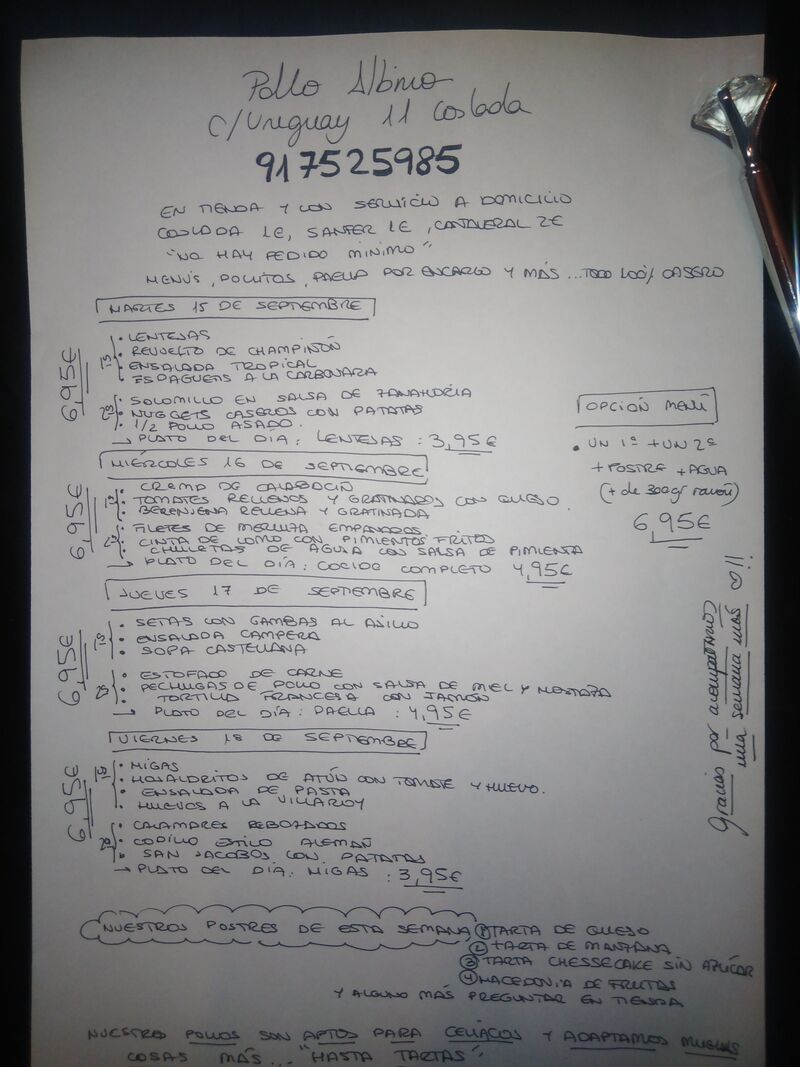 Pollo Albino
C/Uruguay 11 Coslada
917525985
EN TIENDA Y CON SERVICIO A DOMICILIO
COSLADA 1€, SANFER 1€, CAÑAVERAL 2€
"NO HAY PEDIDO MINIMO"
MENUS, POLLITOS, PAELLA POR ENCARGO Y MÁS...TODO 100% CASERO
MARTES 15 DE SEPTIEMBRE
6,95€
1º
• LENTEJAS
• REVUELTO DE CHAMPIÑÓN
• ENSALADA TROPICAL
• ESPAGUETIS A LA CARBONARA
2º
• SOLOMILLO EN SALSA DE ZANAHORIA
• NUGGETS CASEROS CON PATATAS
• 1/2 POLLO ASADO.
→ PLATO DEL DÍA: LENTEJAS : 3,95€
MIÉRCOLES 16 DE SEPTIEMBRE
6,95€
1º
• CREMA DE CALABACÍN
• TOMATES RELLENOS Y GRATINADOS CON QUESO.
• BERENJENA RELLENA Y GRATINADA
2º
• FILETES DE MERLUZA EMPANADOS
• CINTA DE LOMO CON PIMIENTOS FRITOS
• CHULETAS DE AGUJA CON SALSA DE PIMIENTA
→ PLATO DEL DÍA: COCIDO COMPLETO 4,95€
JUEVES 17 DE SEPTIEMBRE
6,95€
1º
• SETAS CON GAMBAS AL AJILLO
• ENSALADA CAMPERA
• SOPA CASTELLANA
2º
• ESTOFADO DE CARNE
• PECHUGAS DE POLLO CON SALSA DE MIEL Y MOSTAZA
• TORTILLA FRANCESA CON JAMÓN
→ PLATO DEL DÍA: PAELLA : 4,95€
VIERNES 18 DE SEPTIEMBRE
6,95€
1º
• MIGAS
• HOJALDRITOS DE ATÚN CON TOMATE Y HUEVO.
• ENSALADA DE PASTA
• HUEVOS A LA VILLAROY
2º
• CALAMARES REBOZADOS
• CODILLO ESTILO ALEMAÑ
• SAN JACOBOS CON PATATAS
→ PLATO DEL DÍA: MIGAS : 3,95€
OPCIÓN MENÚ
• UN 1º + UN 2º
+ POSTRE + AGUA
(+ de 300gr ración)
6,95€
Gracias por acompañarnos
una semana más !!
NUESTROS POSTRES DE ESTA SEMANA
① TARTA DE QUESO
② TARTA DE MANZANA
③ TARTA CHESSECAKE SIN AZÚCAR
④ MACEDONIA DE FRUTAS
Y ALGUNO MÁS PREGUNTAR EN TIENDA
NUESTROS POLLOS SON APTOS PARA CELIACOS Y ADAPTAMOS MUCHAS
COSAS MÁS... "HASTA TARTAS"